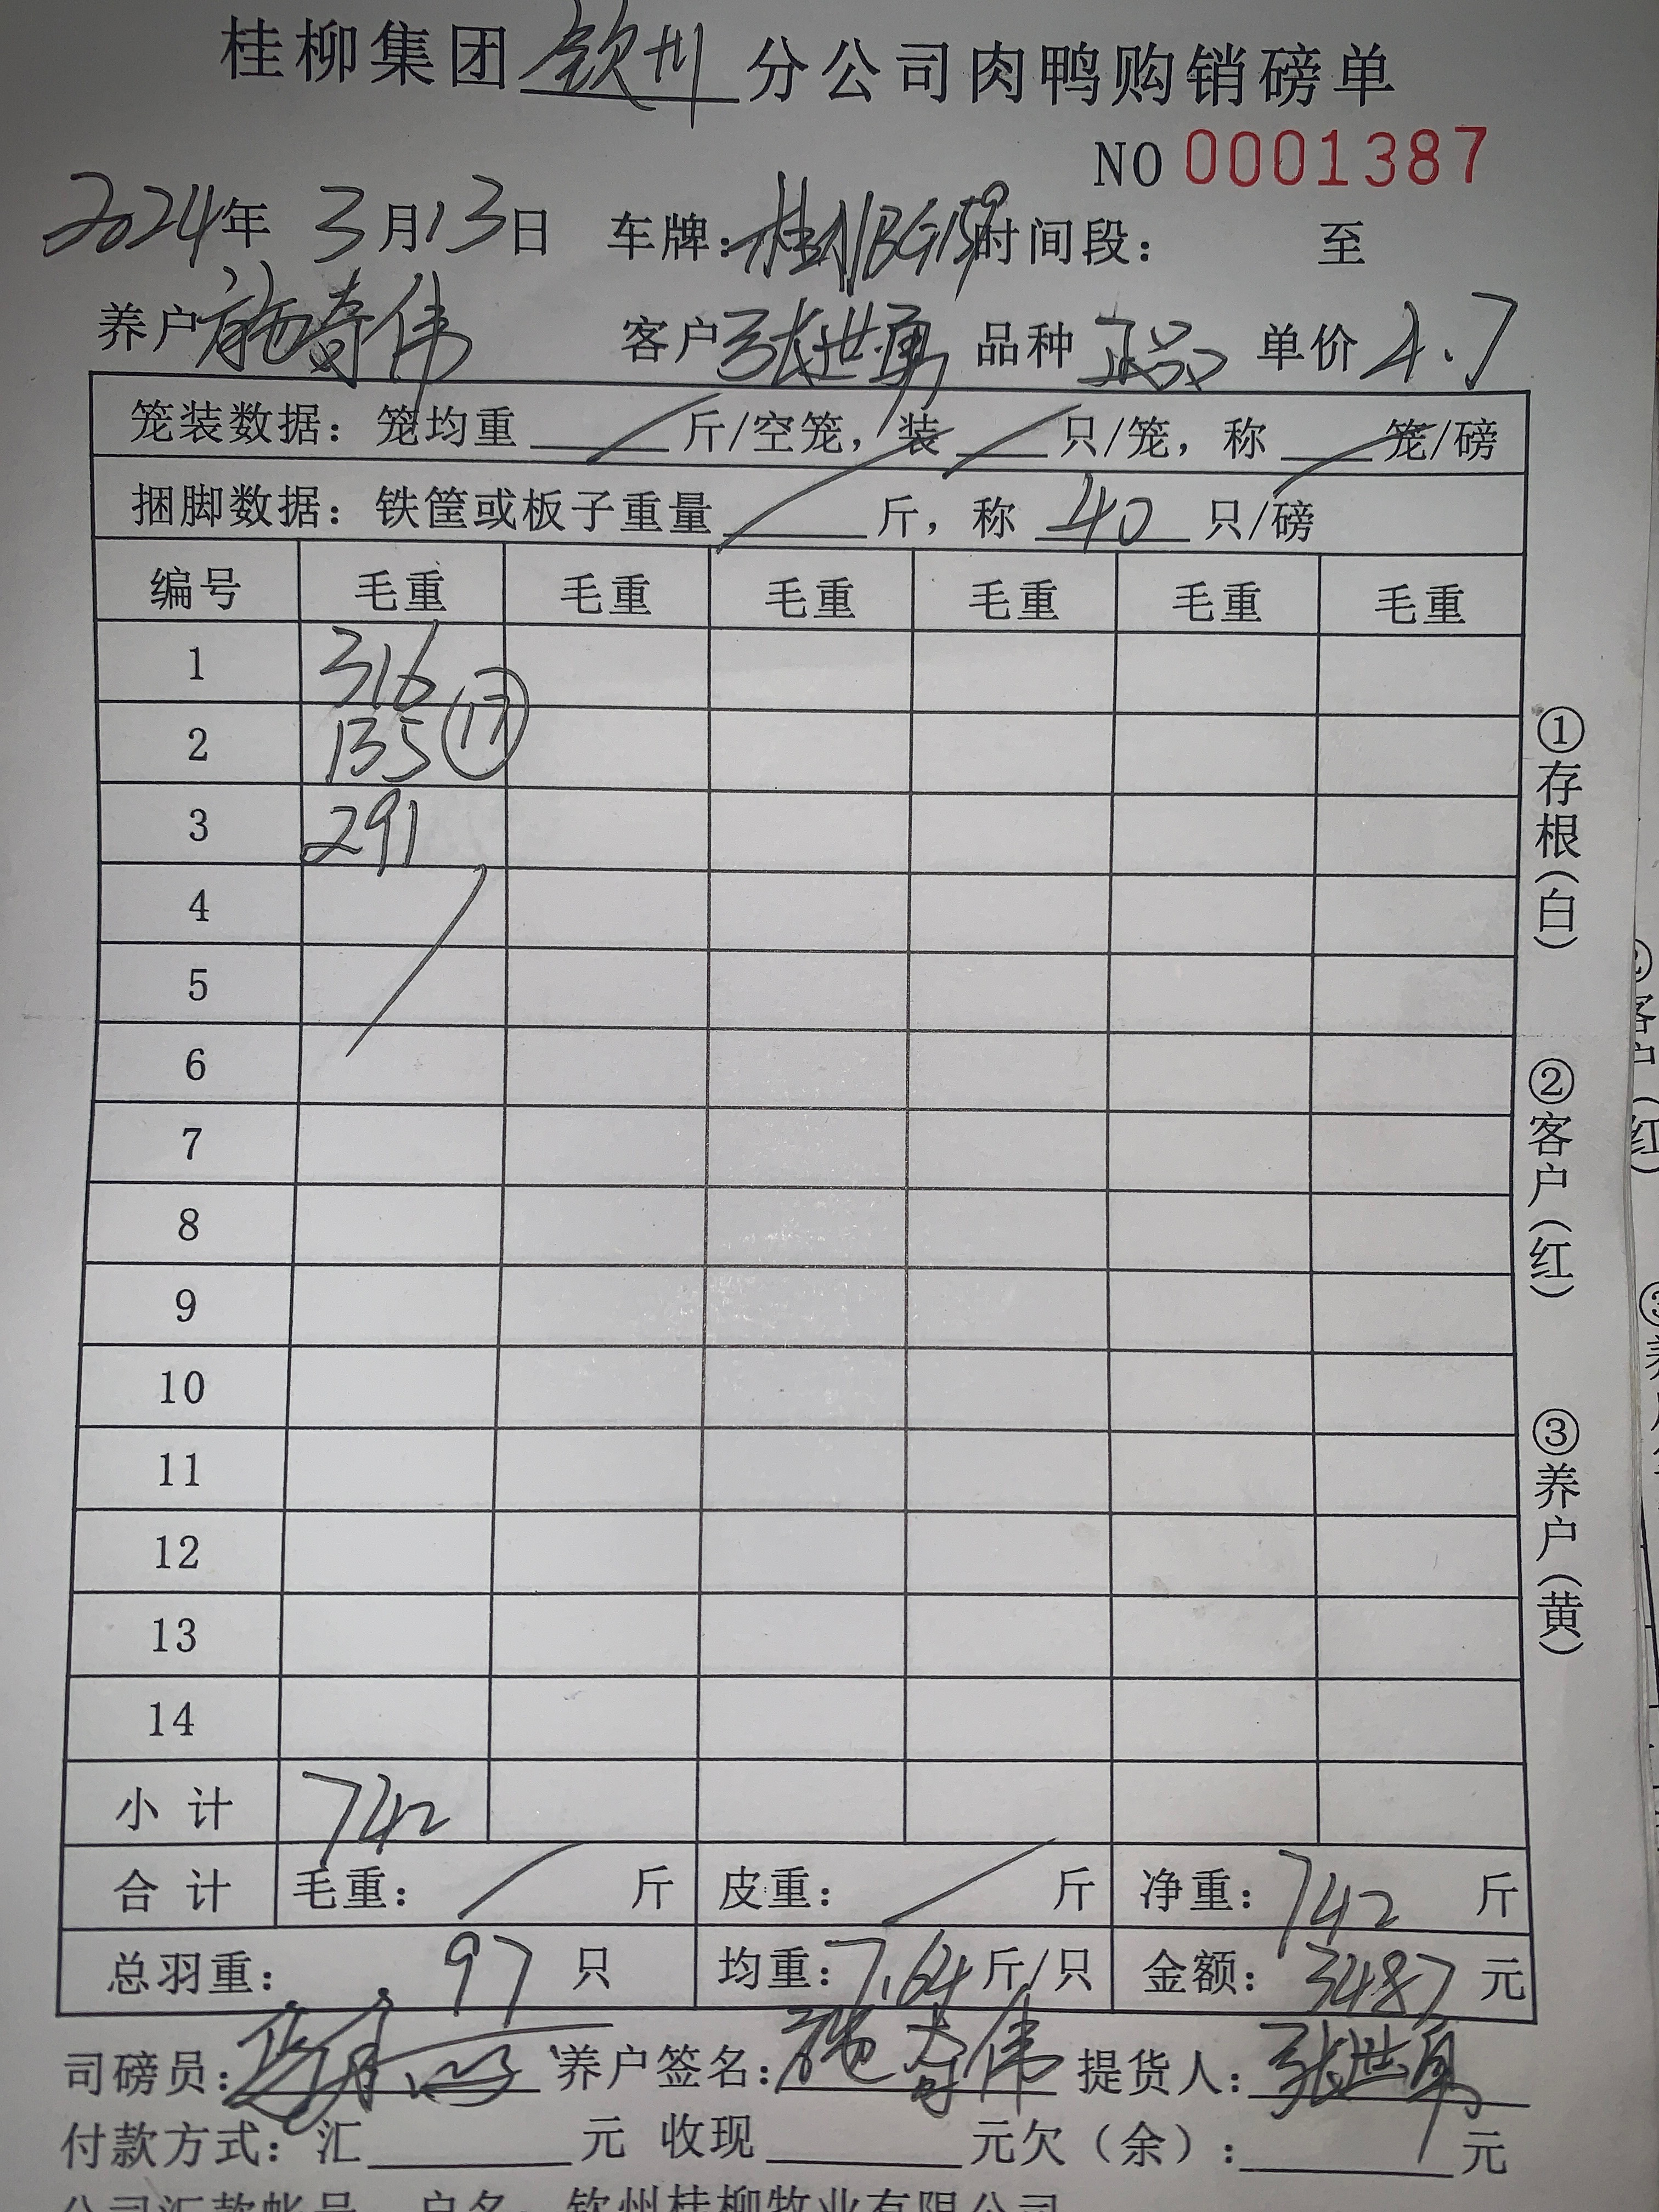 桂柳集团钦州分公司肉鸭购销磅单
NO 0001387
2024年 3月13日 车牌: 桂NBG159 时间段: 至
养户 施奇伟 客户 张世勇 品种 正品 单价 4.7
笼装数据: 笼均重 斤/空笼, 装 只/笼, 称 笼/磅
捆脚数据: 铁筐或板子重量 斤, 称 40 只/磅
编号 毛重 毛重 毛重 毛重 毛重 毛重
1 316
2 135 ⑰
3 291
4
5
6
7
8
9
10
11
12
13
14
小计 742
合计 毛重: 斤 皮重: 斤 净重: 742 斤
总羽重: 97 只 均重: 7.64 斤/只 金额: 3487 元
司磅员: 养户签名: 施奇伟 提货人: 张世勇
付款方式: 汇 元 收现 元欠(余): 元
公司汇款帐号 户名: 钦州桂柳牧业有限公司
①存根(白)
②客户(红)
③养户(黄)
客户(红)